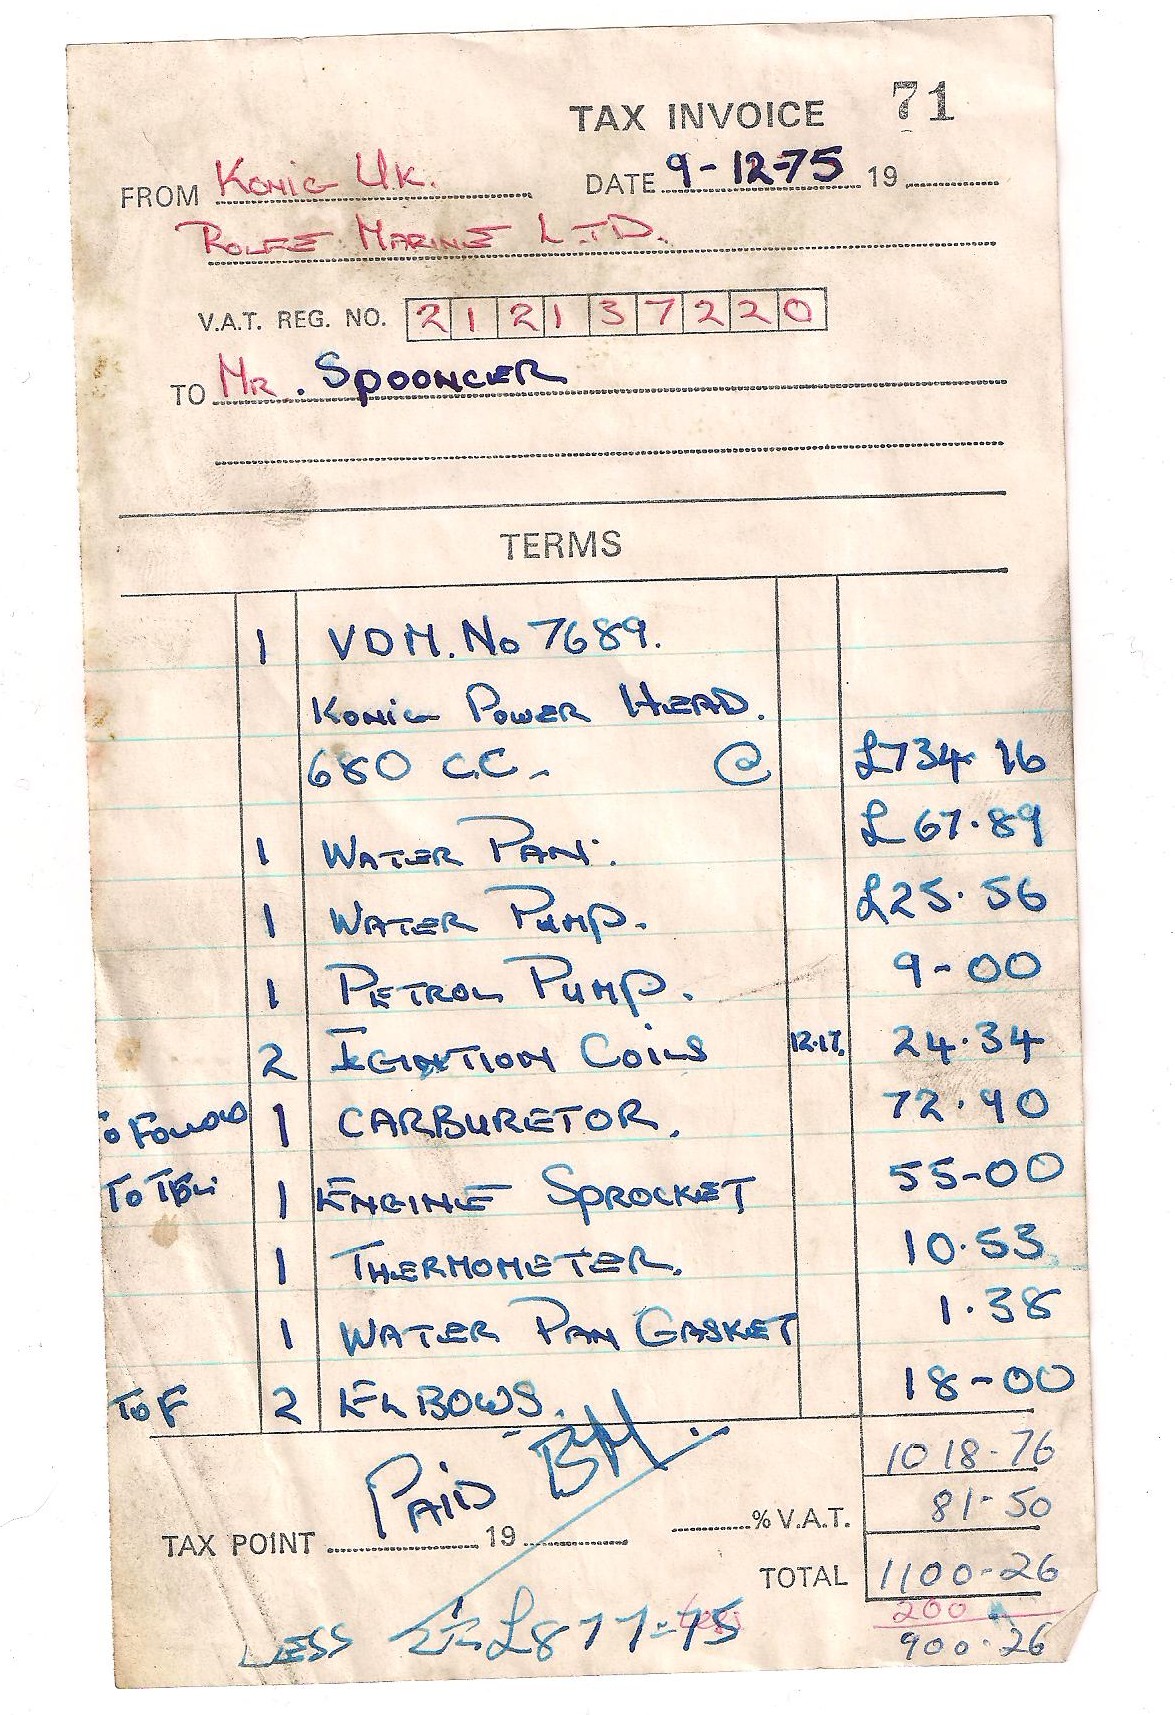 TAX INVOICE 71
FROM KONIG U.K. DATE 9-12-75 19
ROLFE MARINE LTD.
V.A.T. REG. NO. 212137220
TO MR. SPOONCER
TERMS
1 VDM. No 7689.
KONIG POWER HEAD.
680 C.C. @ £734.16
1 WATER PAN. £67.89
1 WATER PUMP. £25.56
1 PETROL PUMP. 9-00
2 IGNITION COILS 12.17. 24.34
TO FOLLOW 1 CARBURETOR. 72.90
TO 1 ENGINE SPROCKET 55-00
1 THERMOMETER. 10.53
1 WATER PAN GASKET 1.38
TO F 2 ELBOWS. 18-00
1018-76
PAID BM.
% V.A.T. 81-50
TAX POINT 19
TOTAL 1100-26
200
LESS £877-75 900.26